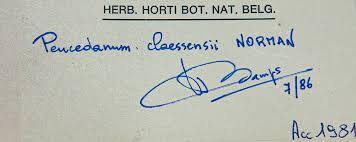 HERB. HORTI BOT. NAT. BELG.
Peucedanum claessensii NORMAN
Bamps
7/86
Acc 1981